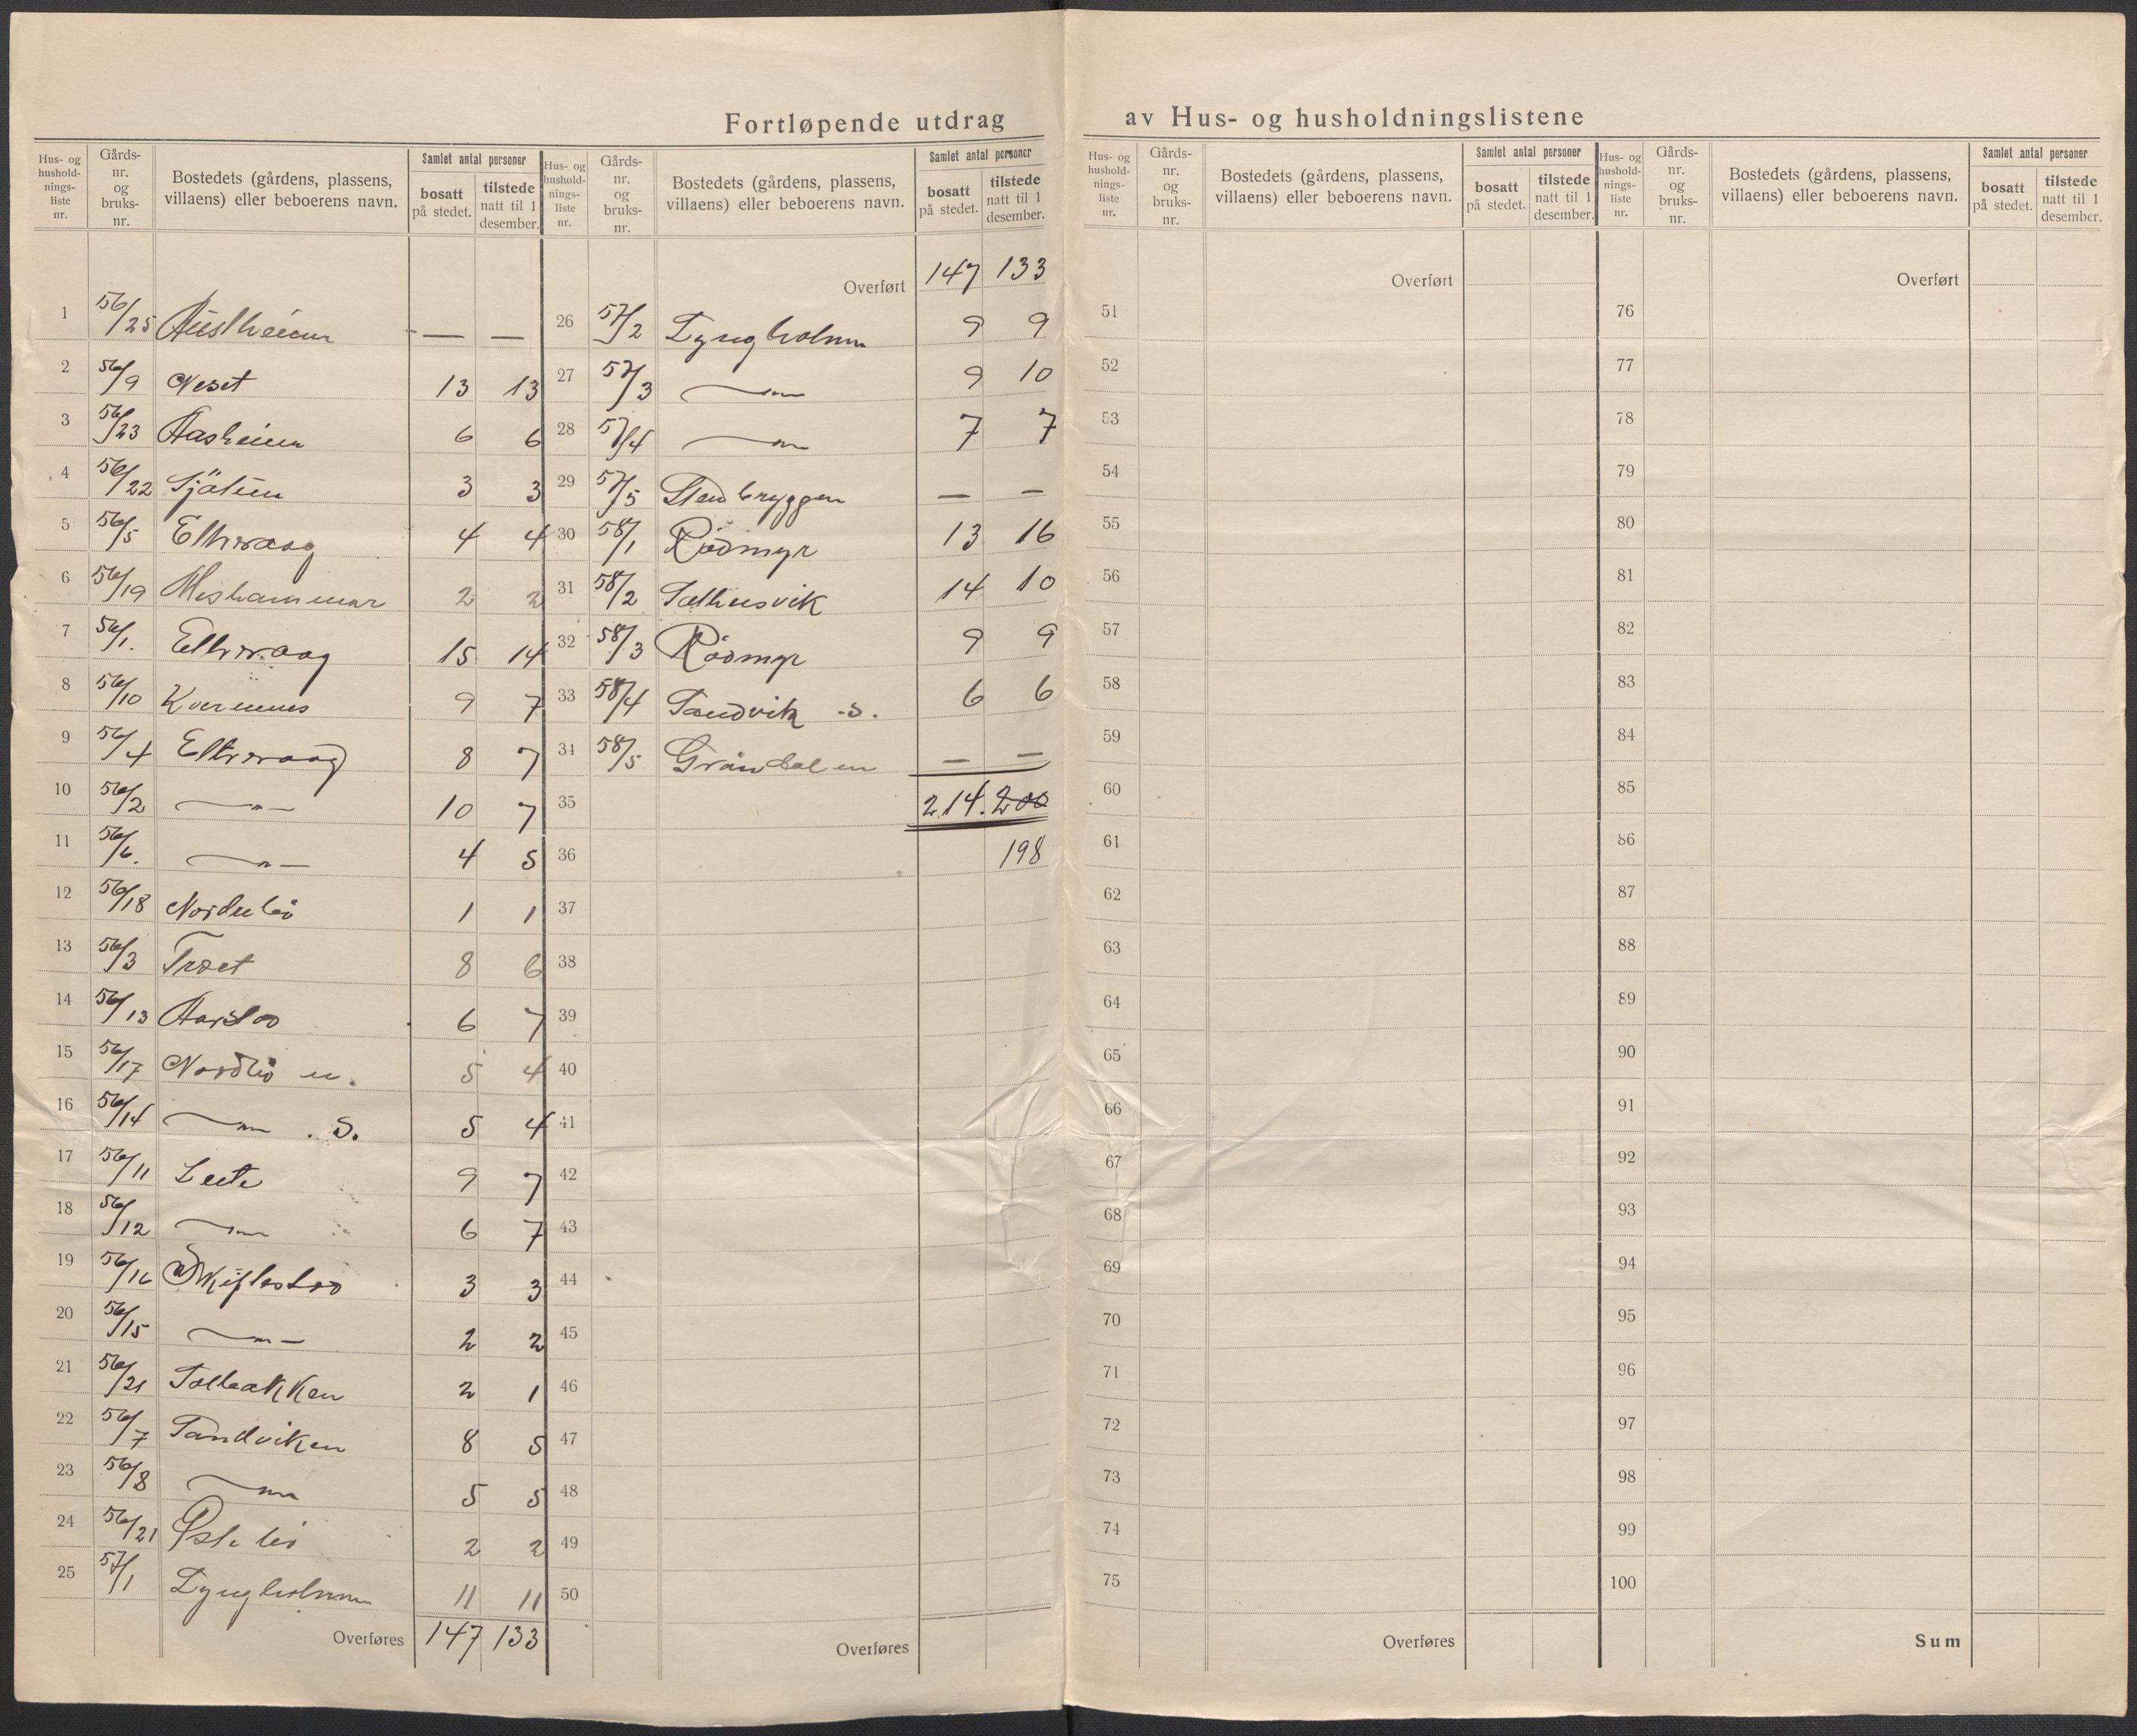 Fortløpende utdrag av Hus- og husholdningslistene
Hus- og hushold-nings-liste nr. | Gårds-nr. og bruks-nr. | Bostedets (gårdens, plassens, villaens) eller beboerens navn. | Samlet antal personer | bosatt på stedet. | tilstede natt til 1 desember.
1 56/25 Austheim — —
2 56/9 Neset 13 13
3 56/23 Aasheim 6 6
4 56/22 Sjåtun 3 3
5 56/5 Eltvraag 4 4
6 56/19 Meshammar 2 2
7 56/1. Eltvraag 15 14
8 56/10 Kvernnes 9 7
9 56/4 Eltvraag 8 7
10 56/2 —"— 10 7
11 56/6. —"— 4 5
12 56/18 Nordnbø 1 1
13 56/3 Trøet 8 6
14 56/13 Aarstoo 6 7
15 56/17 Nordbø n. 5 4
16 56/14 —"— . S. 5 4
17 56/11 Leite 9 7
18 56/12 —"— 6 7
19 56/16 Skiftestoo 3 3
20 56/15 —"— 2 2
21 56/21 Solbakken 2 1
22 56/7 Sandviken 8 5
23 56/8 —"— 5 5
24 56/21 Østebø 2 2
25 57/1 Lyngholmen 11 11
Overføres 147 133
Hus- og hushold-nings-liste nr. | Gårds-nr. og bruks-nr. | Bostedets (gårdens, plassens, villaens) eller beboerens navn. | Samlet antal personer | bosatt på stedet. | tilstede natt til 1 desember.
Overført 147 133
26 57/2 Lyngholmen 9 9
27 57/3 —"— 9 10
28 57/4 —"— 7 7
29 57/5 Stenbryggen — —
30 58/1 Rødmyr 13 16
31 58/2 Salthusvik 14 10
32 58/3 Rødmyr 9 9
33 58/4 Sandvik S. 6 6
34 58/5 Grøndalen — —
35 214. 200
36 198
37
38
39
40
41
42
43
44
45
46
47
48
49
50
Overføres
Hus- og hushold-nings-liste nr. | Gårds-nr. og bruks-nr. | Bostedets (gårdens, plassens, villaens) eller beboerens navn. | Samlet antal personer | bosatt på stedet. | tilstede natt til 1 desember.
Overført
51
52
53
54
55
56
57
58
59
60
61
62
63
64
65
66
67
68
69
70
71
72
73
74
75
Overføres
Hus- og hushold-nings-liste nr. | Gårds-nr. og bruks-nr. | Bostedets (gårdens, plassens, villaens) eller beboerens navn. | Samlet antal personer | bosatt på stedet. | tilstede natt til 1 desember.
Overført
76
77
78
79
80
81
82
83
84
85
86
87
88
89
90
91
92
93
94
95
96
97
98
99
100
Sum